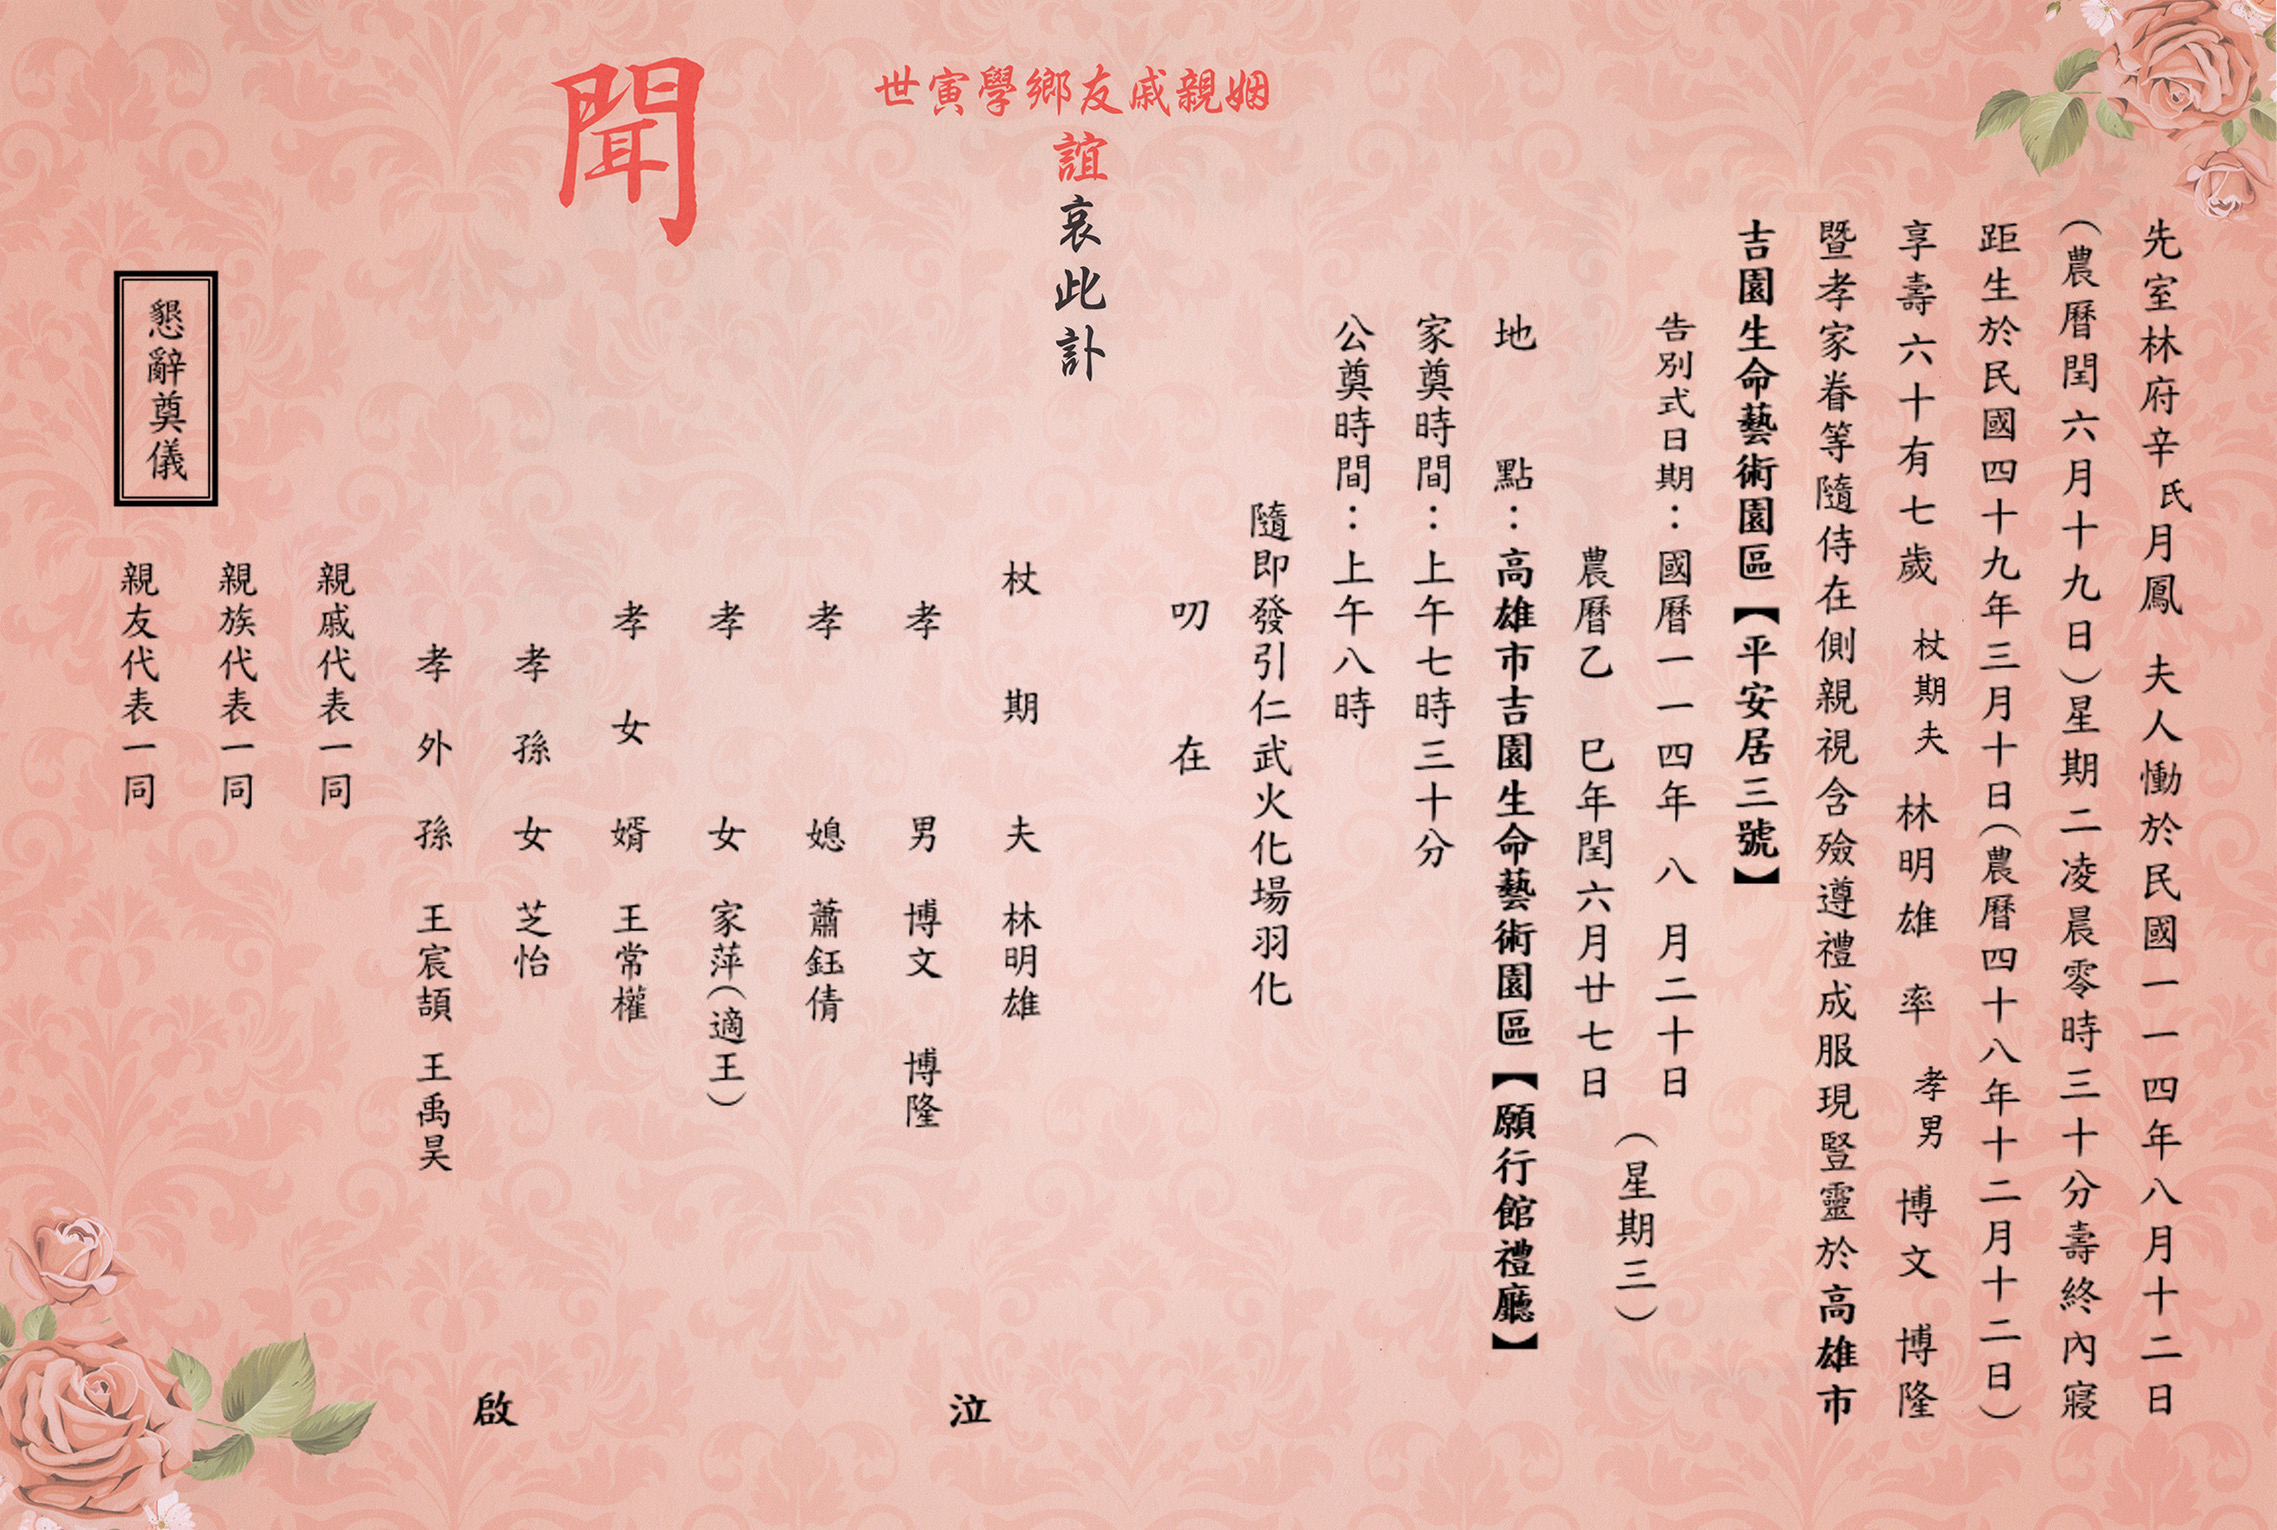 先室林府辛氏月鳳 夫人慟於民國一一四年八月十二日
（農曆閏六月十九日）星期二凌晨零時三十分壽終內寢
距生於民國四十九年三月十日（農曆四十八年十二月十二日）
享壽六十有七歲 杖期夫 林明雄 率 孝男 博文 博隆
暨孝家眷等隨侍在側親視含殮遵禮成服現豎靈於高雄市
吉園生命藝術園區【平安居三號】
告別式日期：國曆一一四年 八 月二十日
農曆乙 巳年閏六月廿七日
（星期三）
地 點：高雄市吉園生命藝術園區【願行館禮廳】
家奠時間：上午七時三十分
公奠時間：上午八時
隨即發引仁武火化場羽化
叨 在
姻親戚友鄉學寅世
誼哀此訃
聞
杖 期 夫 林明雄
孝 男 博文 博隆
孝 媳 蕭鈺倩
孝 女 家萍（適王）
孝 女 婿 王常權
孝 孫 女 芝怡
孝 外 孫 王宸頡 王禹昊
泣
啟
親戚代表一同
親族代表一同
親友代表一同
懇辭奠儀